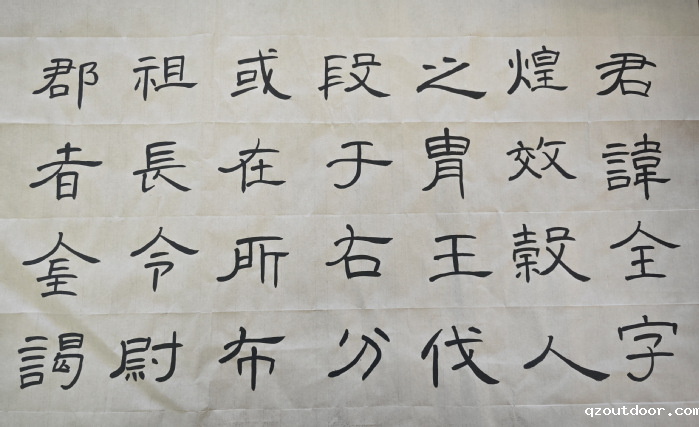 君諱全字
煌效穀人
之胄王伐
段于右分
或在所布
祖長令尉
郡者謁
qzoutdoor.com